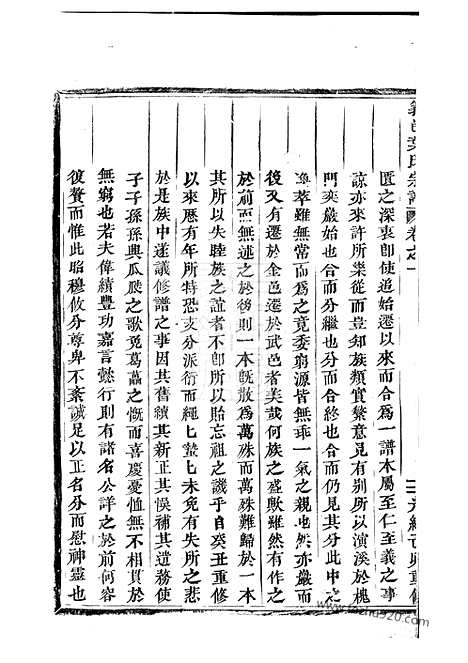 義邑葉氏宗譜 卷之一
光緒己卯重修
匱之深衷即使追始遷以來而合為一譜本屬至仁至義之事
諒亦來許所樂從而豈知族類實繁意見有別所以濵溪於槐
門奕巖始也合而分繼也分而合終也合而仍見其分此中之
萃雖無常而為之竟委窮源皆無乖一氣之親也然亦巖而
後又有遷於金邑遷於武邑者美哉何族之盛歟雖然有作之
於前而無述之於後則一本旣散為萬殊而萬殊難歸於一本
其所以失睦族之誼者不即所以貽忘祖之譏乎自癸丑重修
以來歷有年所特恐支分派衍而繩蟄未免有失所之悲
於是族中遂議修譜之事因其舊續其新正其悞補其遺務使
子子孫孫興瓜瓞之歌免葛藟之慨而喜慶憂恤無不相貫於
無窮也若夫偉績豐功嘉言懿行則有諸名公詳之於前何容
復贅而惟此昭穆攸分尊卑不紊誠足以正名分而慰神靈也